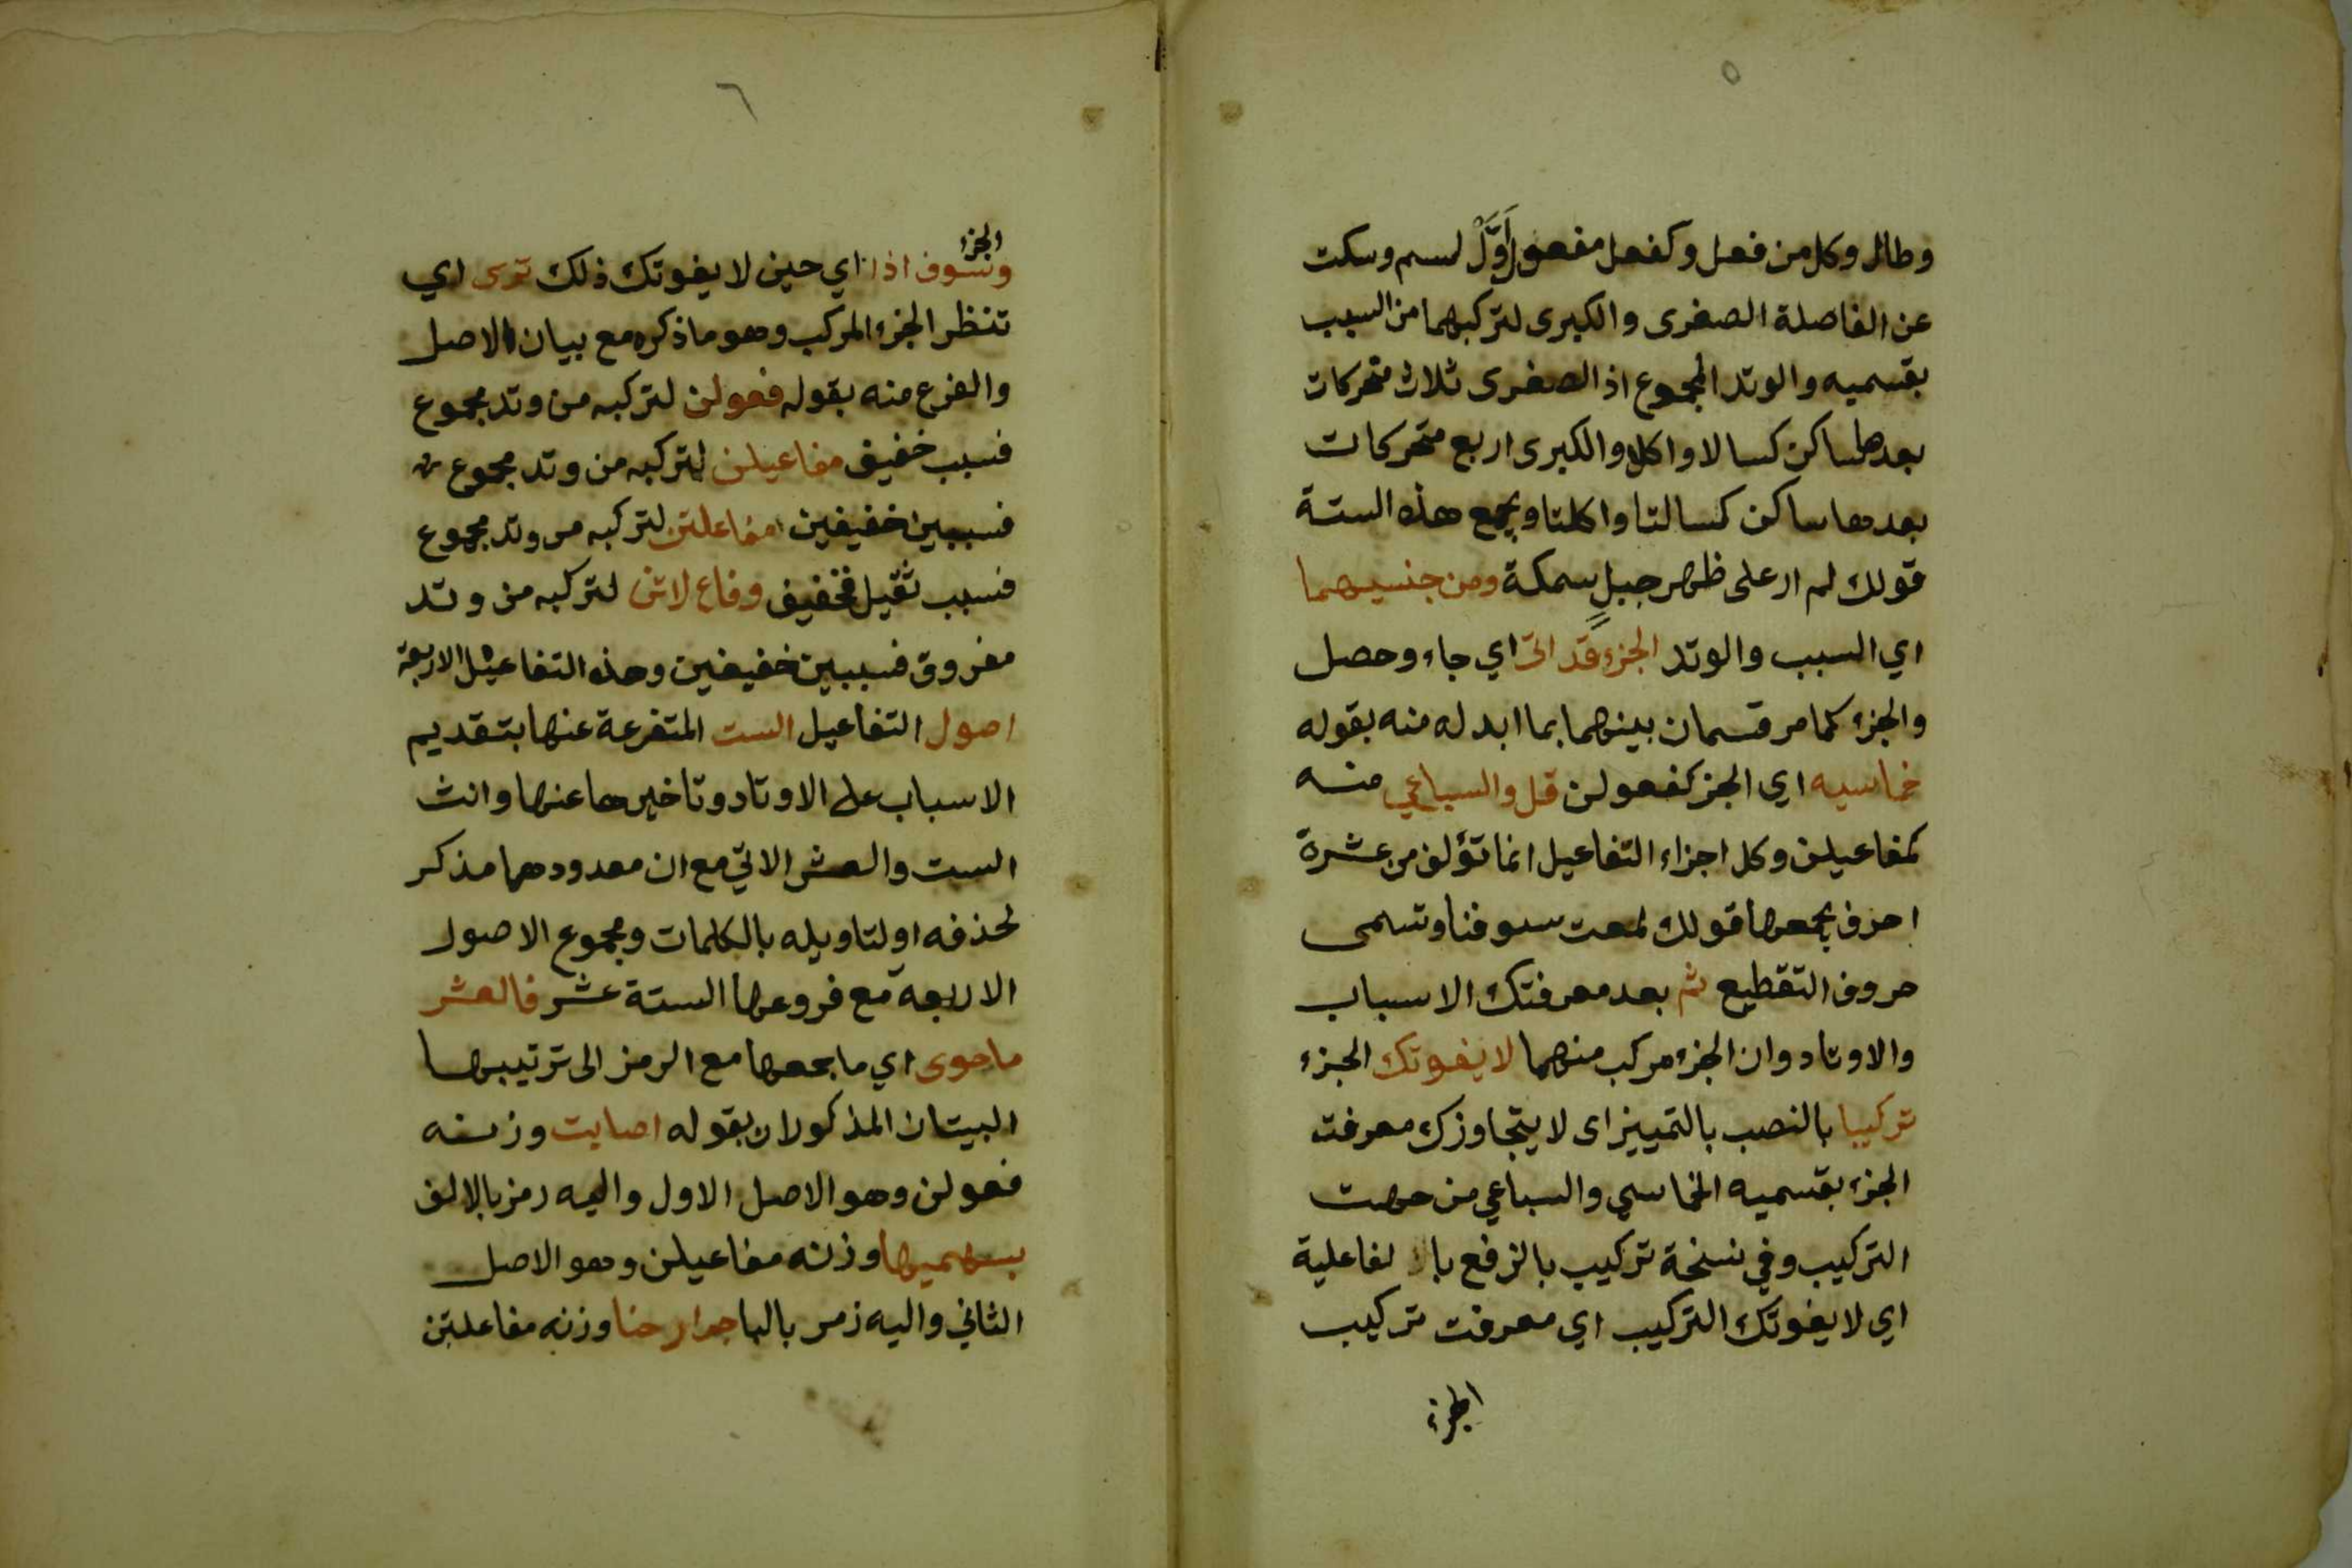 ٥
وطال وكل من فعل وكفعل مفعول اَوَّلْ لسم وسكت
عن الفاصلة الصغرى والكبرى لتركبهما من السبب
بقسميه والوتد المجموع اذ الصغرى ثلاث متحركات
بعدها ساكن كسالا واكلا والكبرى اربع متحركات
بعدها ساكن كسالتا واكلتا ويجمع هذه الستة
قولك لم ار على ظهر جبلٍ سمكة ومن جنسيهما
اي السبب والوتد الجزء قد اتى اي جاء وحصل
والجزء كما مر قسمان بينهما بما ابدله منه بقوله
خماسيه اي الجز كفعولن قل والسباعي منه
كمفاعيلن وكل اجزاء التفاعيل انما تؤلف من عشرة
احرف يجمعها قولك لمعت سيوفنا وتسمى
حروف التقطيع ثم بعد معرفتك الاسباب
والاوتاد وان الجزء مركب منهما لا يفوتك الجزء
تركيبا بالنصب بالتمييز اى لا يتجاوزك معرفت
الجزء بقسميه الخماسي والسباعي من جهت
التركيب وفي نسخة تركيب بالرفع بالفاعلية
اي لا يفوتك التركيب اي معرفت تركيب
الجزء
٦
الجزء
وسوف اذا اي حين لا يفوتك ذلك ترى اي
تنظر الجزء المركب وهو ما ذكره مع بيان الاصل
والفرع منه بقوله فعولن لتركبه من وتد مجموع
فسبب خفيف مفاعيلن لتركبه من وتد مجموع
فسببين خفيفين مفاعلتن لتركبه من وتد مجموع
فسبب ثقيل فخفيف وفاع لاتن لتركبه من وتد
مفروق فسببين خفيفين وهذه التفاعيل الاربعة
اصول التفاعيل الست المتفرعة عنها بتقديم
الاسباب على الاوتاد وتاخيرها عنها وانث
الست والعشر الاتي مع ان معدودهما مذكر
لحذفه او لتاويله بالكلمات ومجموع الاصول
الاربعة مع فروعها الستة عشر فالعشر
ما حوى اي ما جمعها مع الرمز الى ترتيبها
البيتان المذكوران بقوله اصابت وزنه
فعولن وهو الاصل الاول واليه رمز بالالف
بسهميها وزنه مفاعيلن وهو الاصل
الثاني واليه زمر بالبا جوارحنا وزنه مفاعلتن